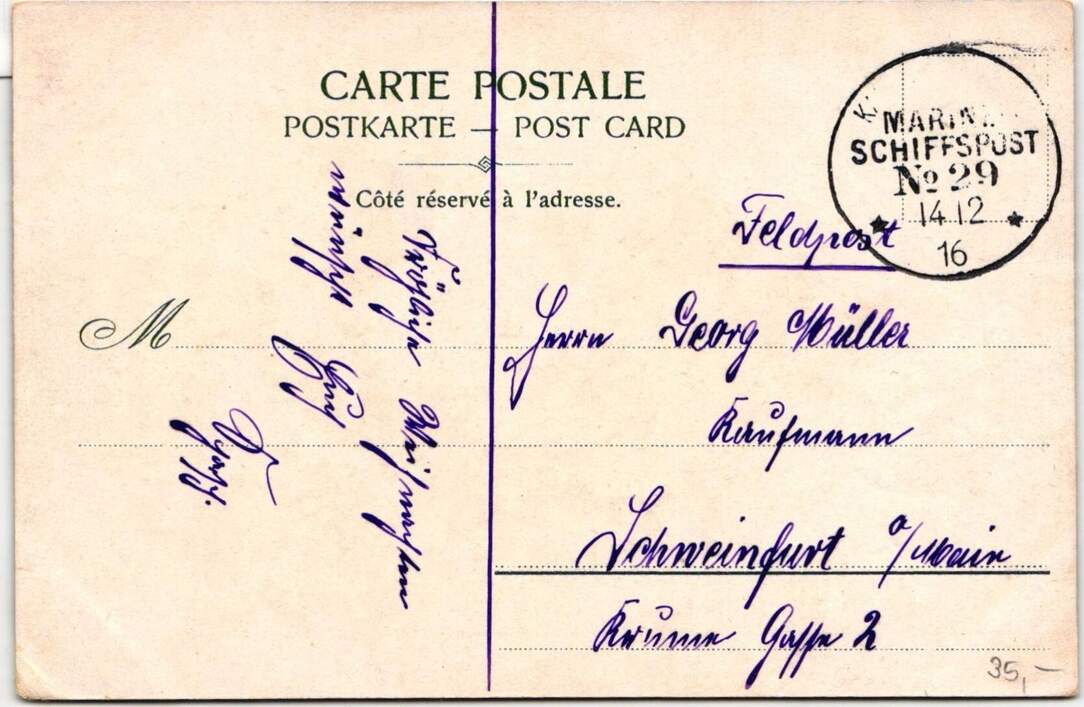 CARTE POSTALE
POSTKARTE — POST CARD
Côté réservé à l'adresse.
MARINE
SCHIFFSPOST
No 29
14 12
16
Feldpost
M
Herrn Georg Müller
Kaufmann
Schweinfurt a/Main
Krume Gasse 2
Fröhliche Weihnachten
wünscht
35,—